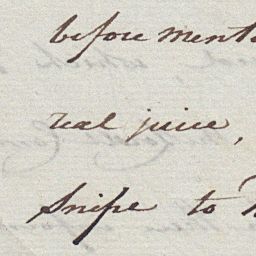 before ment
real juice,
Snipe to